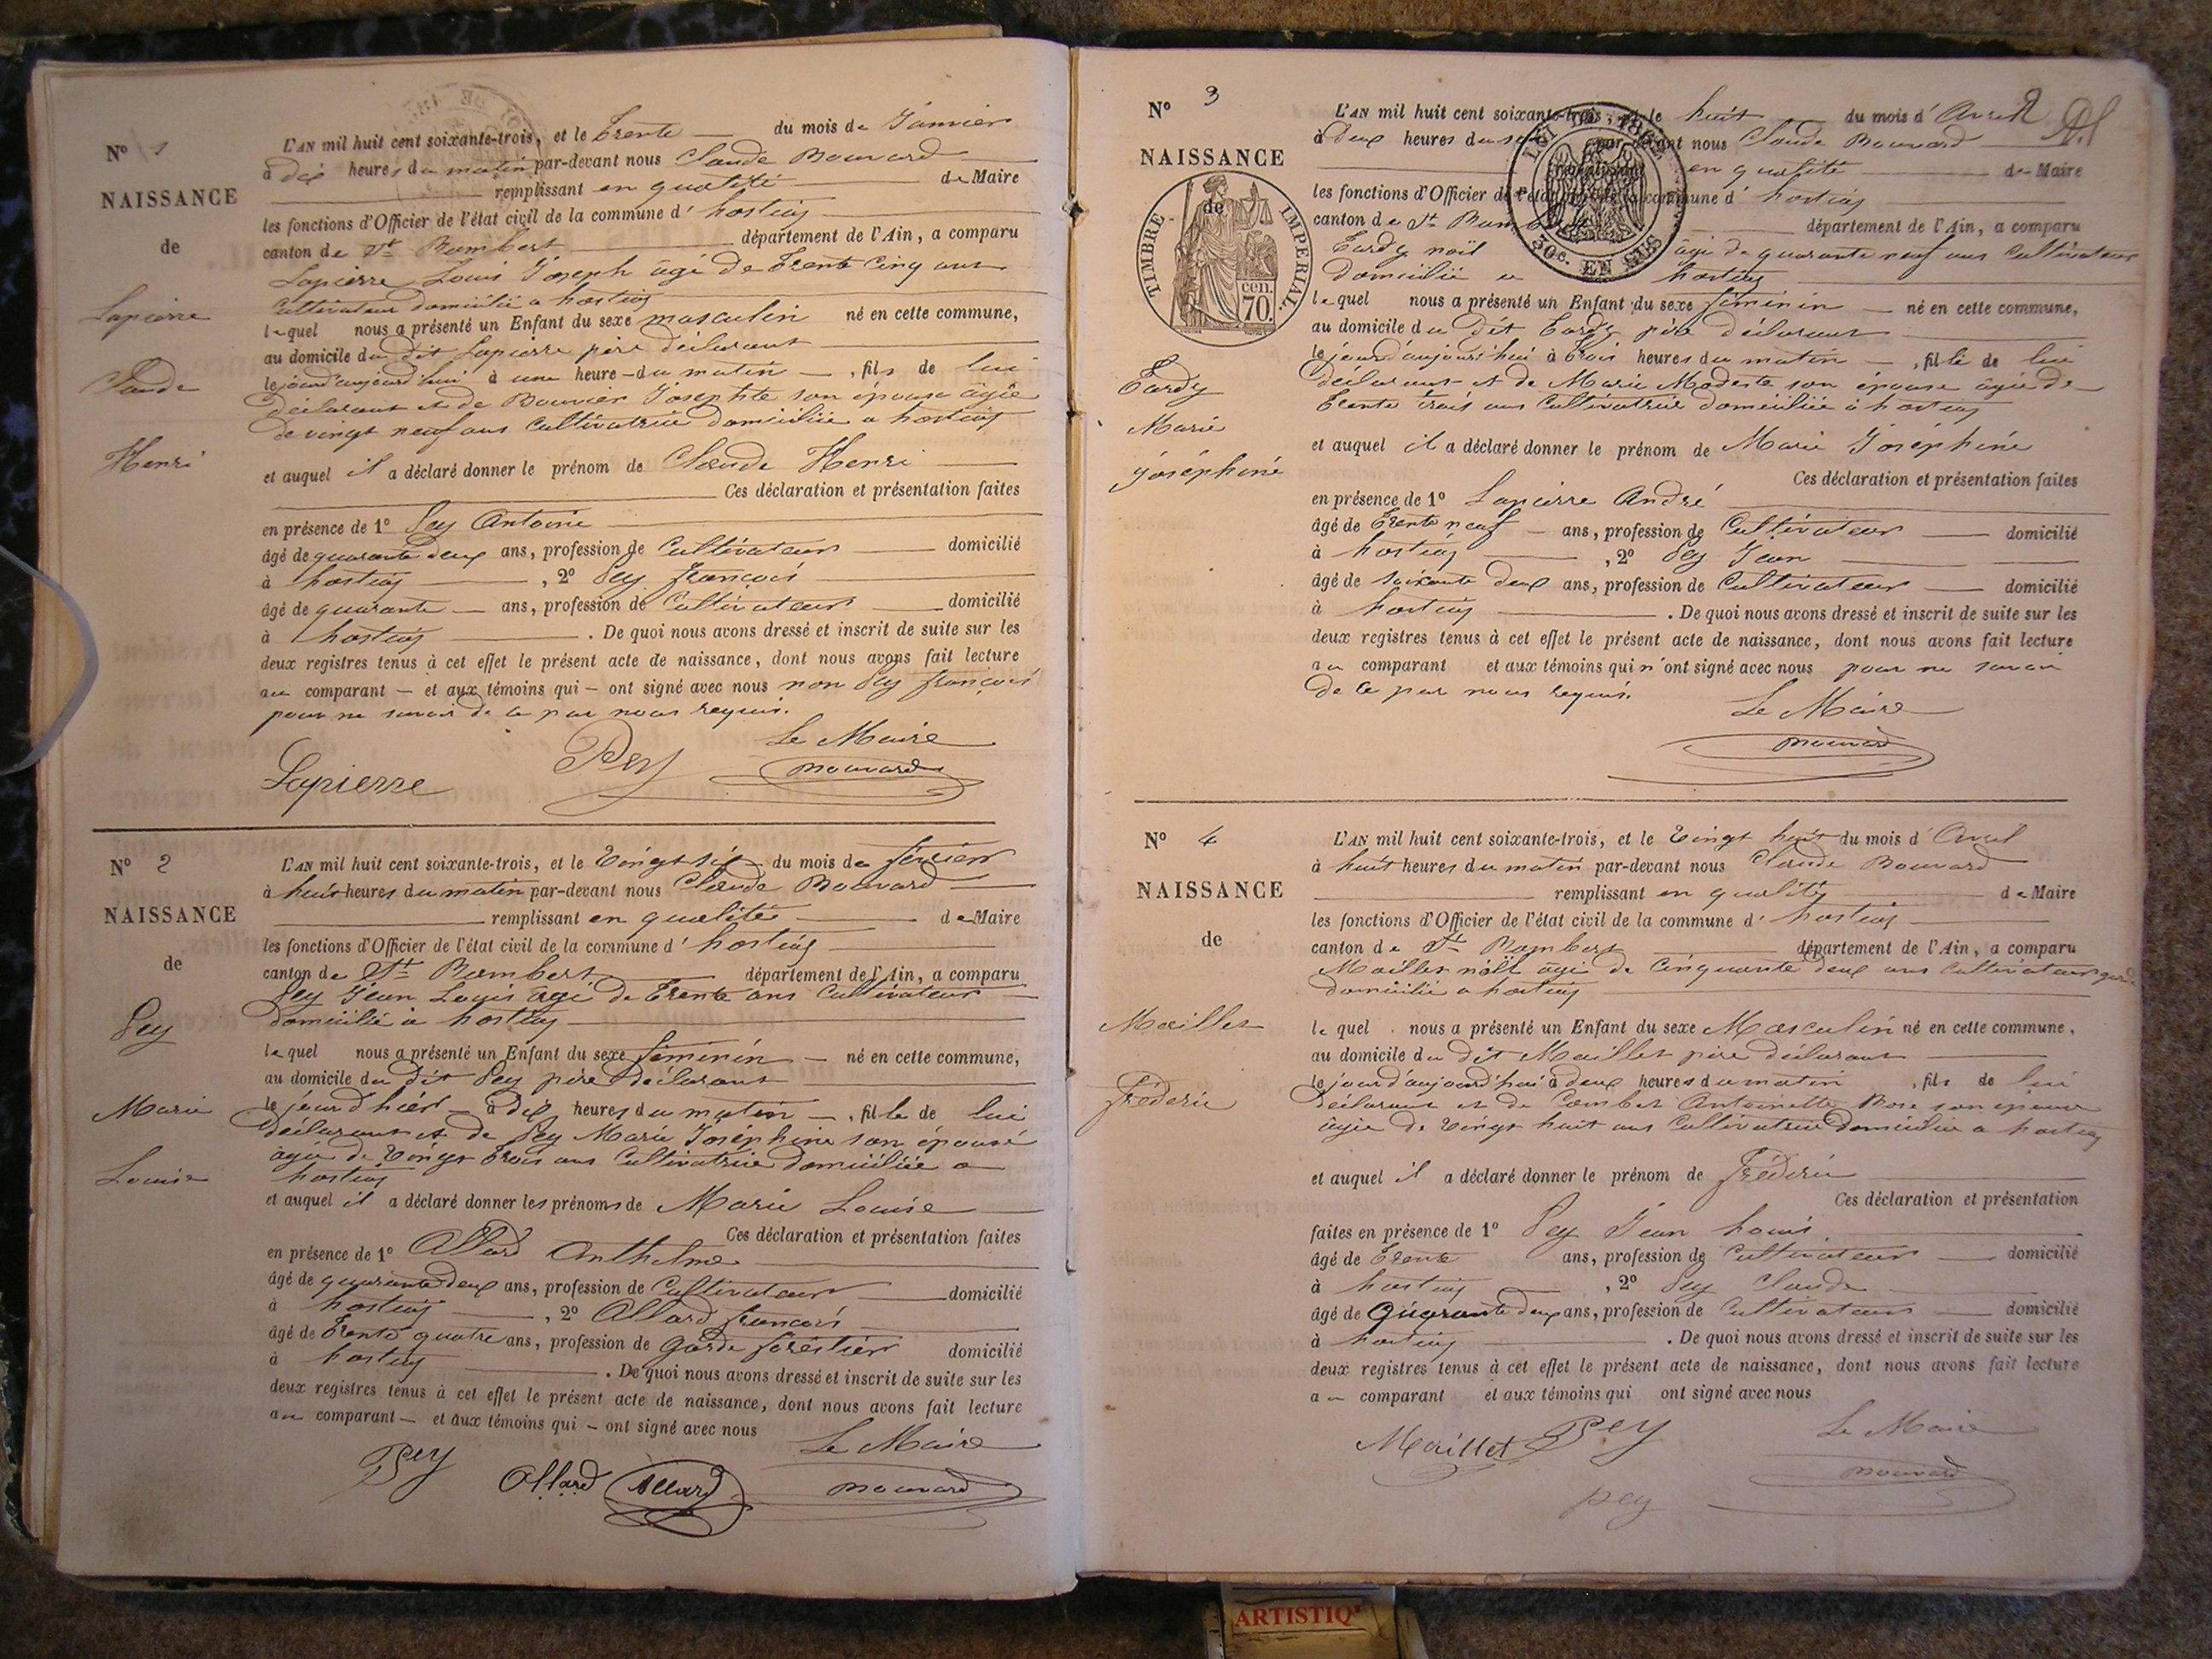 N° 1
NAISSANCE
de
Lapierre
Claude
Henri
L'AN mil huit cent soixante-trois, et le trente du mois de Janvier
à dix heures du matin par-devant nous Claude Bouvard
remplissant en qualité de Maire
les fonctions d'Officier de l'état civil de la commune d' hostiaz
canton de St Rambert département de l'Ain, a comparu
Lapierre Louis Joseph âgé de trente cinq ans
Cultivateur domicilié a hostiaz
lequel nous a présenté un Enfant du sexe masculin né en cette commune,
au domicile du dit Lapierre père déclarant
le jourd'aujourd'hui à une heure du matin, fils de lui
déclarant et de Bouvier Josephte son épouse âgée
de vingt neuf ans Cultivatrice domiciliée a hostiaz
et auquel il a déclaré donner le prénom de Claude Henri
Ces déclaration et présentation faites
en présence de 1° Pey Antoine
âgé de quarante deux ans, profession de Cultivateur domicilié
à hostiaz, 2° Pey françois
âgé de quarante ans, profession de Cultivateur domicilié
à hostiaz. De quoi nous avons dressé et inscrit de suite sur les
deux registres tenus à cet effet le présent acte de naissance, dont nous avons fait lecture
au comparant – et aux témoins qui – ont signé avec nous non Pey françois
pour ne savoir de ce par nous requis.
Le Maire
Lapierre Pey Bouvard
N° 2
NAISSANCE
de
Pey
Marie
Louise
L'AN mil huit cent soixante-trois, et le Vingt six du mois de février
à huit heures du matin par-devant nous Claude Bouvard
remplissant en qualité de Maire
les fonctions d'Officier de l'état civil de la commune d' hostiaz
canton de St Rambert département de l'Ain, a comparu
Pey Jean Louis âgé de trente ans Cultivateur
domicilié à hostiaz
lequel nous a présenté un Enfant du sexe féminin né en cette commune,
au domicile du dit Pey père déclarant
le jour d'hier à dix heures du matin, fille de lui
déclarant et de Pey Marie Joséphine son épouse
âgée de Vingt trois ans Cultivatrice domiciliée a
hostiaz
et auquel il a déclaré donner les prénoms de Marie Louise
Ces déclaration et présentation faites
en présence de 1° Allard Anthelme
âgé de quarante deux ans, profession de Cultivateur domicilié
à hostiaz, 2° Allard françois
âgé de trente quatre ans, profession de garde forestier domicilié
à hostiaz. De quoi nous avons dressé et inscrit de suite sur les
deux registres tenus à cet effet le présent acte de naissance, dont nous avons fait lecture
au comparant – et aux témoins qui – ont signé avec nous
Le Maire
Pey Allard Allard Bouvard
N° 3
NAISSANCE
de
TIMBRE IMPERIAL
70 cen.
Tardy
Marie
Joséphine
2
L'AN mil huit cent soixante-trois, et le huit du mois d' Avril
à deux heures du soir par-devant nous Claude Bouvard
remplissant en qualité de Maire
30c. EN SUS
les fonctions d'Officier de l'état civil de la commune d' hostiaz
canton de St Rambert département de l'Ain, a comparu
Tardy noël âgé de quarante neuf ans Cultivateur
domicilié a hostiaz
lequel nous a présenté un Enfant du sexe féminin né en cette commune,
au domicile du dit Tardy père déclarant
le jourd'aujourd'hui à trois heures du matin, fille de lui
déclarant et de Marie Modeste son épouse âgée de
trente trois ans Cultivatrice domiciliée à hostiaz
et auquel il a déclaré donner le prénom de Marie Joséphine
Ces déclaration et présentation faites
en présence de 1° Lapierre André
âgé de trente neuf ans, profession de Cultivateur domicilié
à hostiaz, 2° Pey Jean
âgé de soixante deux ans, profession de Cultivateur domicilié
à hostiaz. De quoi nous avons dressé et inscrit de suite sur les
deux registres tenus à cet effet le présent acte de naissance, dont nous avons fait lecture
au comparant et aux témoins qui n'ont signé avec nous pour ne savoir
de ce par nous requis.
Le Maire
Bouvard
N° 4
NAISSANCE
de
Maillet
Fréderic
L'AN mil huit cent soixante-trois, et le Vingt huit du mois d' Avril
à huit heures du matin par-devant nous Claude Bouvard
remplissant en qualité de Maire
les fonctions d'Officier de l'état civil de la commune d' hostiaz
canton de St Rambert département de l'Ain, a comparu
Maillet noël âgé de Cinquante deux ans Cultivateur
domicilié a hostiaz
lequel nous a présenté un Enfant du sexe Masculin né en cette commune,
au domicile du dit Maillet père déclarant
le jour d'aujourd'hui à deux heures du matin, fils de lui
déclarant et de Combet Antoinette Rose son épouse
âgée de Vingt huit ans Cultivatrice domiciliée a hostiaz
et auquel il a déclaré donner le prénom de Fréderic
Ces déclaration et présentation
faites en présence de 1° Pey Jean Louis
âgé de trente ans, profession de Cultivateur domicilié
à hostiaz, 2° Pey Claude
âgé de Quarante deux ans, profession de Cultivateur domicilié
à hostiaz. De quoi nous avons dressé et inscrit de suite sur les
deux registres tenus à cet effet le présent acte de naissance, dont nous avons fait lecture
au comparant et aux témoins qui ont signé avec nous
Le Maire
Maillet Pey Bouvard
pey
ARTISTIQ